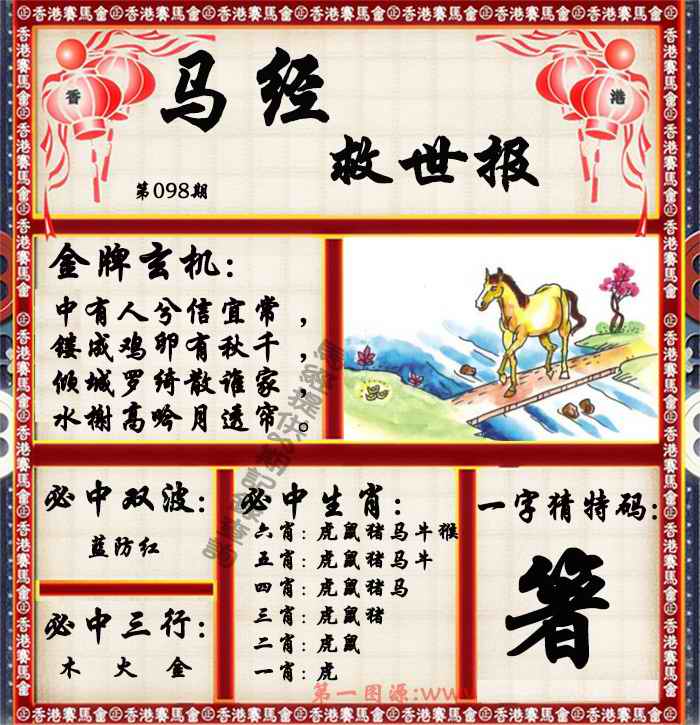 香港賽馬會
香 港
马经
救世报
第098期
金牌玄机:
中有人兮信宜常，
镂成鸡卵有秋千，
倾城罗绮散谁家，
水榭高吟月透帘。
必中双波:
蓝防红
必中三行:
木 火 金
必中生肖:
六肖:虎鼠猪马牛猴
五肖:虎鼠猪马牛
四肖:虎鼠猪马
三肖:虎鼠猪
二肖:虎鼠
一肖:虎
一字猜特码:
箸
第一图源:www